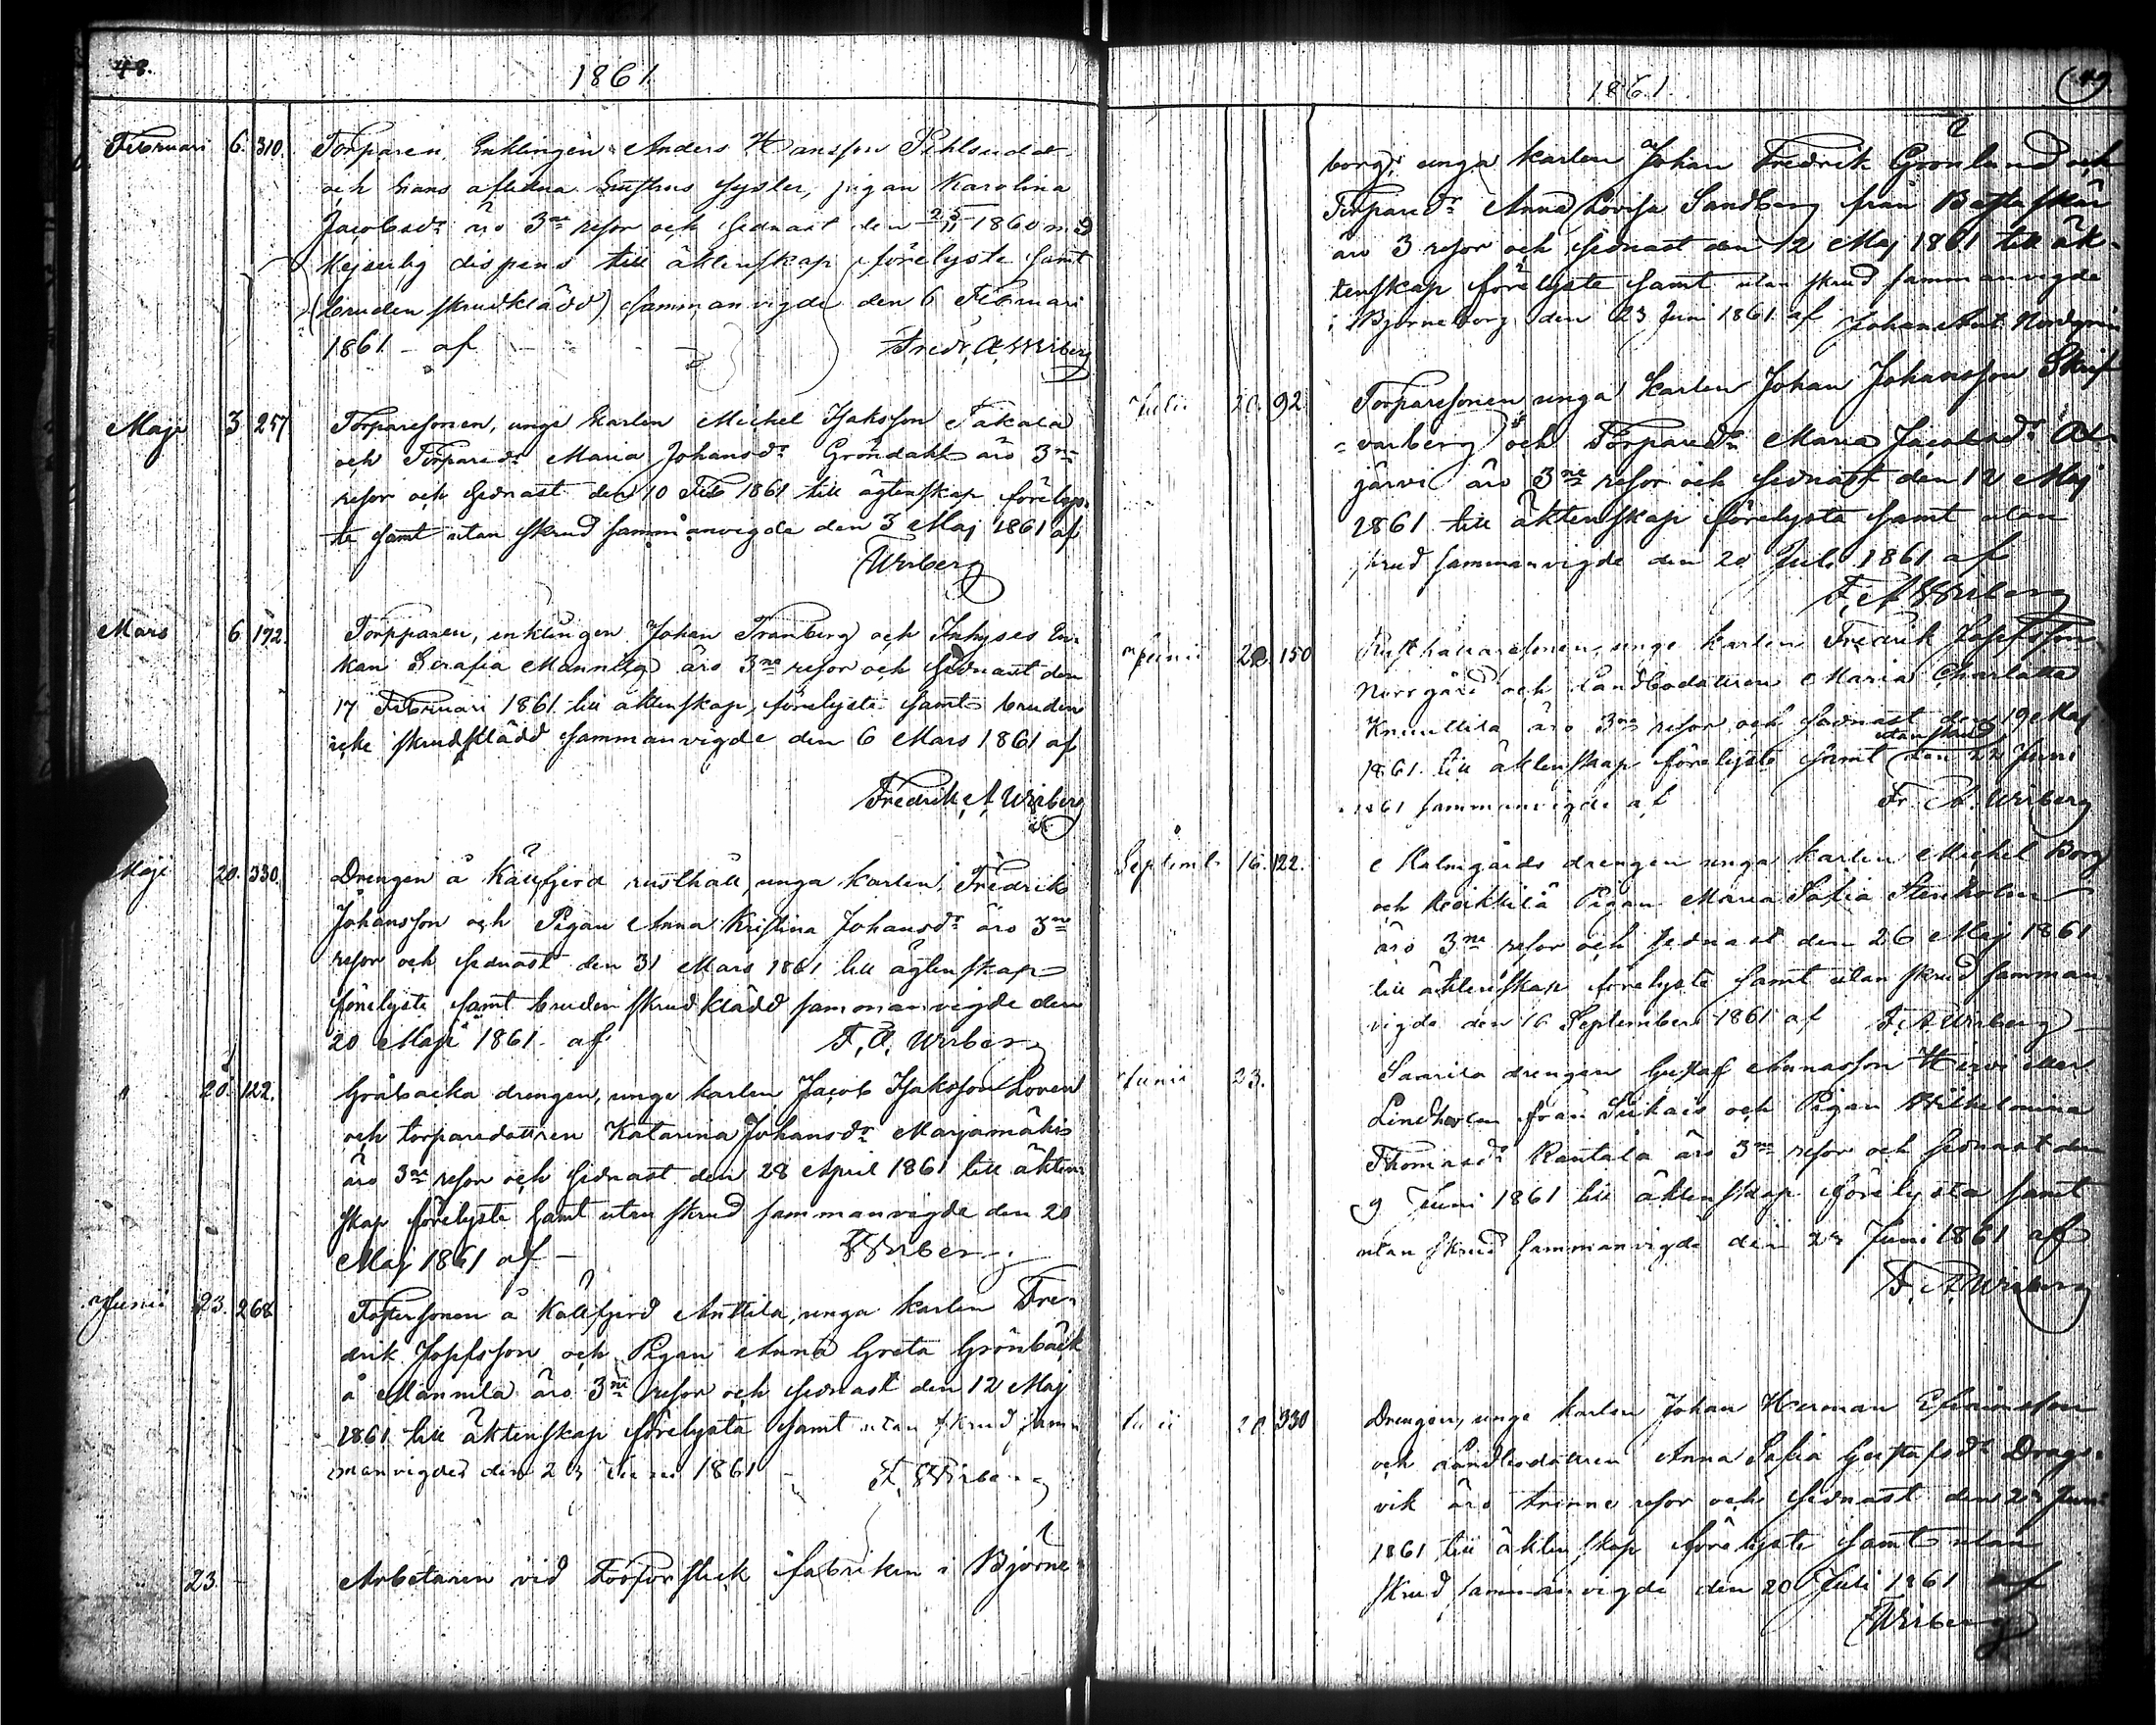 48.
1861.
Februari 6. 310. Torparen, Enklingen Anders Hansson
och hans aflidna hustrus syster, pigan Karolina
Jacobsdr äro 3ne resor och sednast den 25/11 1860 med
Kejserlig dispens till äktenskap förelyste samt
(bruden skrudklädd) sammanvigde den 6 Februari
1861 af Fredr. A. Wirberg
Maji 3 257 Torparesonen, unge karlen Michel Isaksson Takala
och Torparedr Maria Johansdr Gröndahl äro 3ne
resor och sednast den 10 Feb 1861 till ägtenskap förelys-
te samt utan skrud sammanvigde den 3 Maj 1861 af
Wirberg
Mars 6 172. Torpparen, enklingen Johan Tranberg och Inhyses En-
kan Serafia Mannila äro 3ne resor och sednast den
17 Februari 1861 till äktenskap, förelyste samt bruden
icke skrudklädd sammanvigde den 6 Mars 1861 af
Fredrik A. Wirberg
Maji 20. 330. Drengen å Källfjerd rusthåll, unga karlen, Fredrik
Johansson och Pigan Anna Kristina Johansdr äro 3ne
resor och sednast den 31 Mars 1861 till ägtenskap
förelyste samt bruden skrudklädd sammanvigde den
20 Maji 1861 af F. A. Wirberg
" 20. 122. Gråbacka drengen, unge karlen Jacob Isaksson Loven
och torparedottren Katarina Johansdr Marjamäki
äro 3ne resor och sednast den 28 April 1861 till äkten-
skap förelyste samt utan skrud sammanvigde den 20
Maj 1861 af Wirberg
Junii 23. 268 Fostersonen å Källfjerd Anttila, unga karlen Fre-
drik Josefsson och Pigan Anna Greta Grönbäck
å Mannila äro 3ne resor och sednast den 12 Maj
1861 till äktenskap förelysta samt utan skrud sam-
manvigde den 23 Junii 1861 F. Wirberg
23. Arbetaren vid fabriken i Björne-
1861.
49
borg, unga karlen Johan Fredrik Grönlund och
Torparedr Anna Lovisa Sandberg från Bastuskär
äro 3 resor och sednast den 12 Maj 1861 till äk-
tenskap förelyste samt utan skrud sammanvigde
i Björneborg den 23 Juni 1861 af Johan Ant. Nordgren
Julii 20. 92. Torparesonen unga karlen Johan Johansson Skrif-
varberg och Torparedr Maria Jacobsdr
järvi äro 3ne resor och sednast den 12 Maj
1861 till äktenskap förelysta samt utan
skrud sammanvigde den 20 Juli 1861 af
F. A. Wirberg
Junii 22. 150 Rusthållaresonen, unge karlen Fredrik Josefsson
Norrgård och Landbodottren Maria Charlotta
Knuuttila äro 3ne resor och sednast den 19 Maj
utan skrud
1861 till äktenskap förelyste samt den 22 Juni
1861 sammanvigde af Fr. A. Wirberg
Septemb. 16. 122. Malmgårds drengen unga karlen Michel Borg
och Heikkilä Pigan Maria Sofia Stenholm
äro 3ne resor och sednast den 26 Maj 1861
till äktenskap förelyste samt utan skrud samman-
vigde den 16 September 1861 af F. A. Wirberg
Junii 23. Saarila drengen Gustaf Annasson Hirvi eller
Lindholm från och Pigan Wilhelmina
Thomasdr Rantala äro 3ne resor och sednast den
9 Juni 1861 till äktenskap förelysta samt
utan skrud sammanvigde den 23 Juni 1861 af
F. A. Wirberg
20 330 Drengen, unge karlen Johan Herman Efraimsson
och Landbodottren Anna Sofia Gustafsdr Drags-
vik äro trenne resor och sednast den 23 Juni
1861 till äktenskap förelyste samt utan
skrud sammanvigde den 20 Juli 1861 af
Wirberg